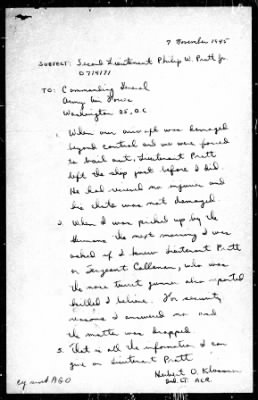 7 November 1945
SUBJECT: Second Lieutenant Philip W. Pratt Jr.
TO: Commanding General
Army Air Force
Washington 25, D.C.
1. When our aircraft was damaged
beyond control and we were forced
to bail out, Lieutenant Pratt
left the ship just before I did.
He had received no injuries and
his chute was not damaged.
2. When I was picked up by the
Germans the next morning I was
asked if I knew Lieutenant Pratt
or Sergeant Callaman, who was
the nose turret gunner also reported
killed I believe. For security
reasons I answered no and
the matter was dropped.
3. That is all the information I can
give on Lieutenant Pratt.
Herbert O. Klossner
2nd Lt. ACR.
cy sent AGO